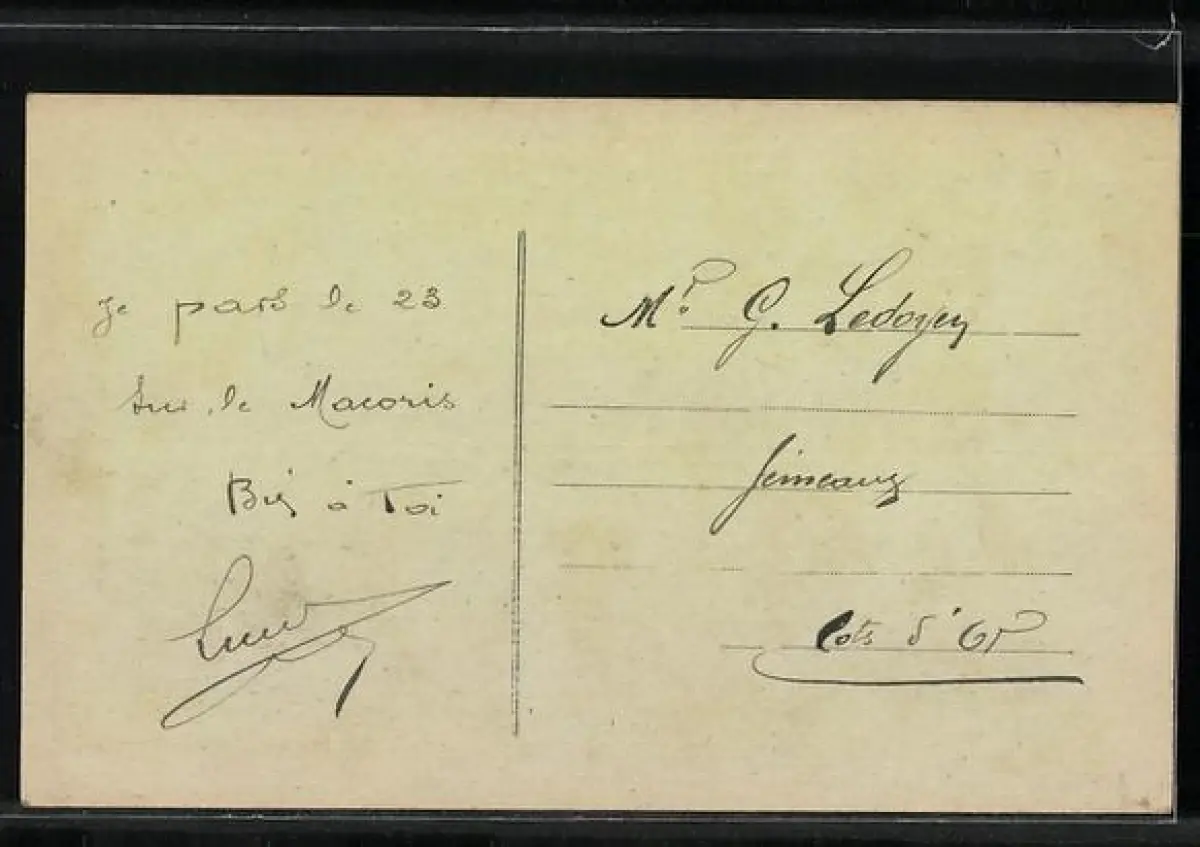 Je pars le 23
sur le Macoris
Bien à Toi
Mr. G. Ledoyen
Gemeaux
Cote d'Or